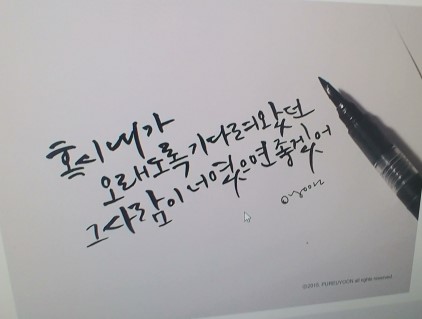 혹시 내가
오래도록 기다려왔던
그 사람이 너였으면 좋겠어
©2015 PUREUYOON all rights reserved.